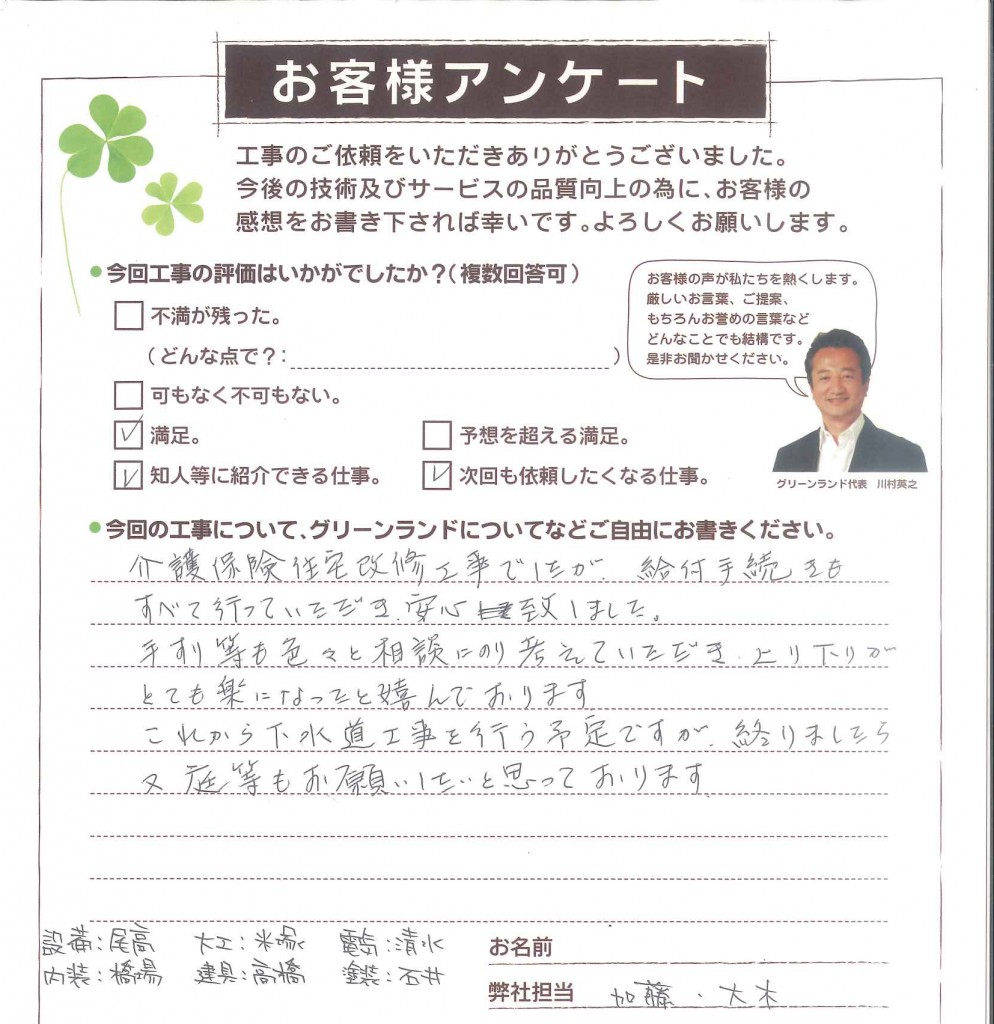 お客様アンケート
工事のご依頼をいただきありがとうございました。
今後の技術及びサービスの品質向上の為に、お客様の
感想をお書き下されば幸いです。よろしくお願いします。
●今回工事の評価はいかがでしたか？（複数回答可）
お客様の声が私たちを熱くします。
厳しいお言葉、ご提案、
もちろんお誉めの言葉など
どんなことでも結構です。
是非お聞かせください。
不満が残った。
（どんな点で？：　）
可もなく不可もない。
満足。　予想を超える満足。
知人等に紹介できる仕事。　次回も依頼したくなる仕事。
グリーンランド代表　川村英之
●今回の工事について、グリーンランドについてなどご自由にお書きください。
介護保険住宅改修工事でしたが、給付手続きも
すべて行っていただき、安心致しました。
手すり等も色々と相談にのり考えていただき、上り下りが
とても楽になったと嬉んでおります
これから下水道工事を行う予定ですが、終りましたら
又庭等もお願いしたいと思っております
設備：尾高　大工：米塚　電気：清水
内装：橋場　建具：高橋　塗装：石井
お名前
弊社担当　加藤・大木